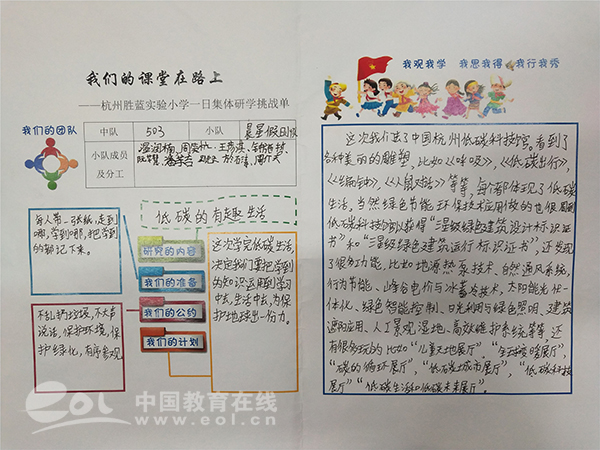 我们的课堂在路上
——杭州胜蓝实验小学一日集体研学挑战单
我们的团队
中队
503
小队
晨星假日小队
小队成员
及分工
低碳的有趣生活
每人带一张纸,走到
哪,学到哪,把学到
的勤记下来。
研究的内容
我们的准备
我们的公约
我们的计划
不乱扔垃圾,不大声
说话,保护环境,保
护绿化,有序参观
这次学完低碳生活,
决定我们要把学到
的知识运用到学习
中去,生活中去,为保
护地球出一份力。
我观我学 我思我得 我行我秀
这次我们去了中国杭州低碳科技馆。看到了
各种美丽的雕塑,比如《呼吸》,《低碳出行》,
《人鼠对话》等等,每一者都体现了低碳
生活,当然绿色节能环保技术应用做的也很
低碳科技馆以获得“三星级绿色建筑设计标识证
书”和“三星级绿色建筑运行标识证书”,还发现
了很多功能,比如地源热泵技术、自然通风系统,
行为节能、峰谷电价与冰蓄冷技术,太阳能光伏一
体化、绿色智能控制、日光利用与绿色照明、建筑
遮阳应用、人工景观湿地、高效维护系统等等,还
有很多玩的比如“儿童天地展厅”,
“碳的循环展厅”,“低碳城市展厅”,“低碳科技
展厅”“低碳生活和低碳未来展厅”。
eol 中国教育在线
www.eol.cn